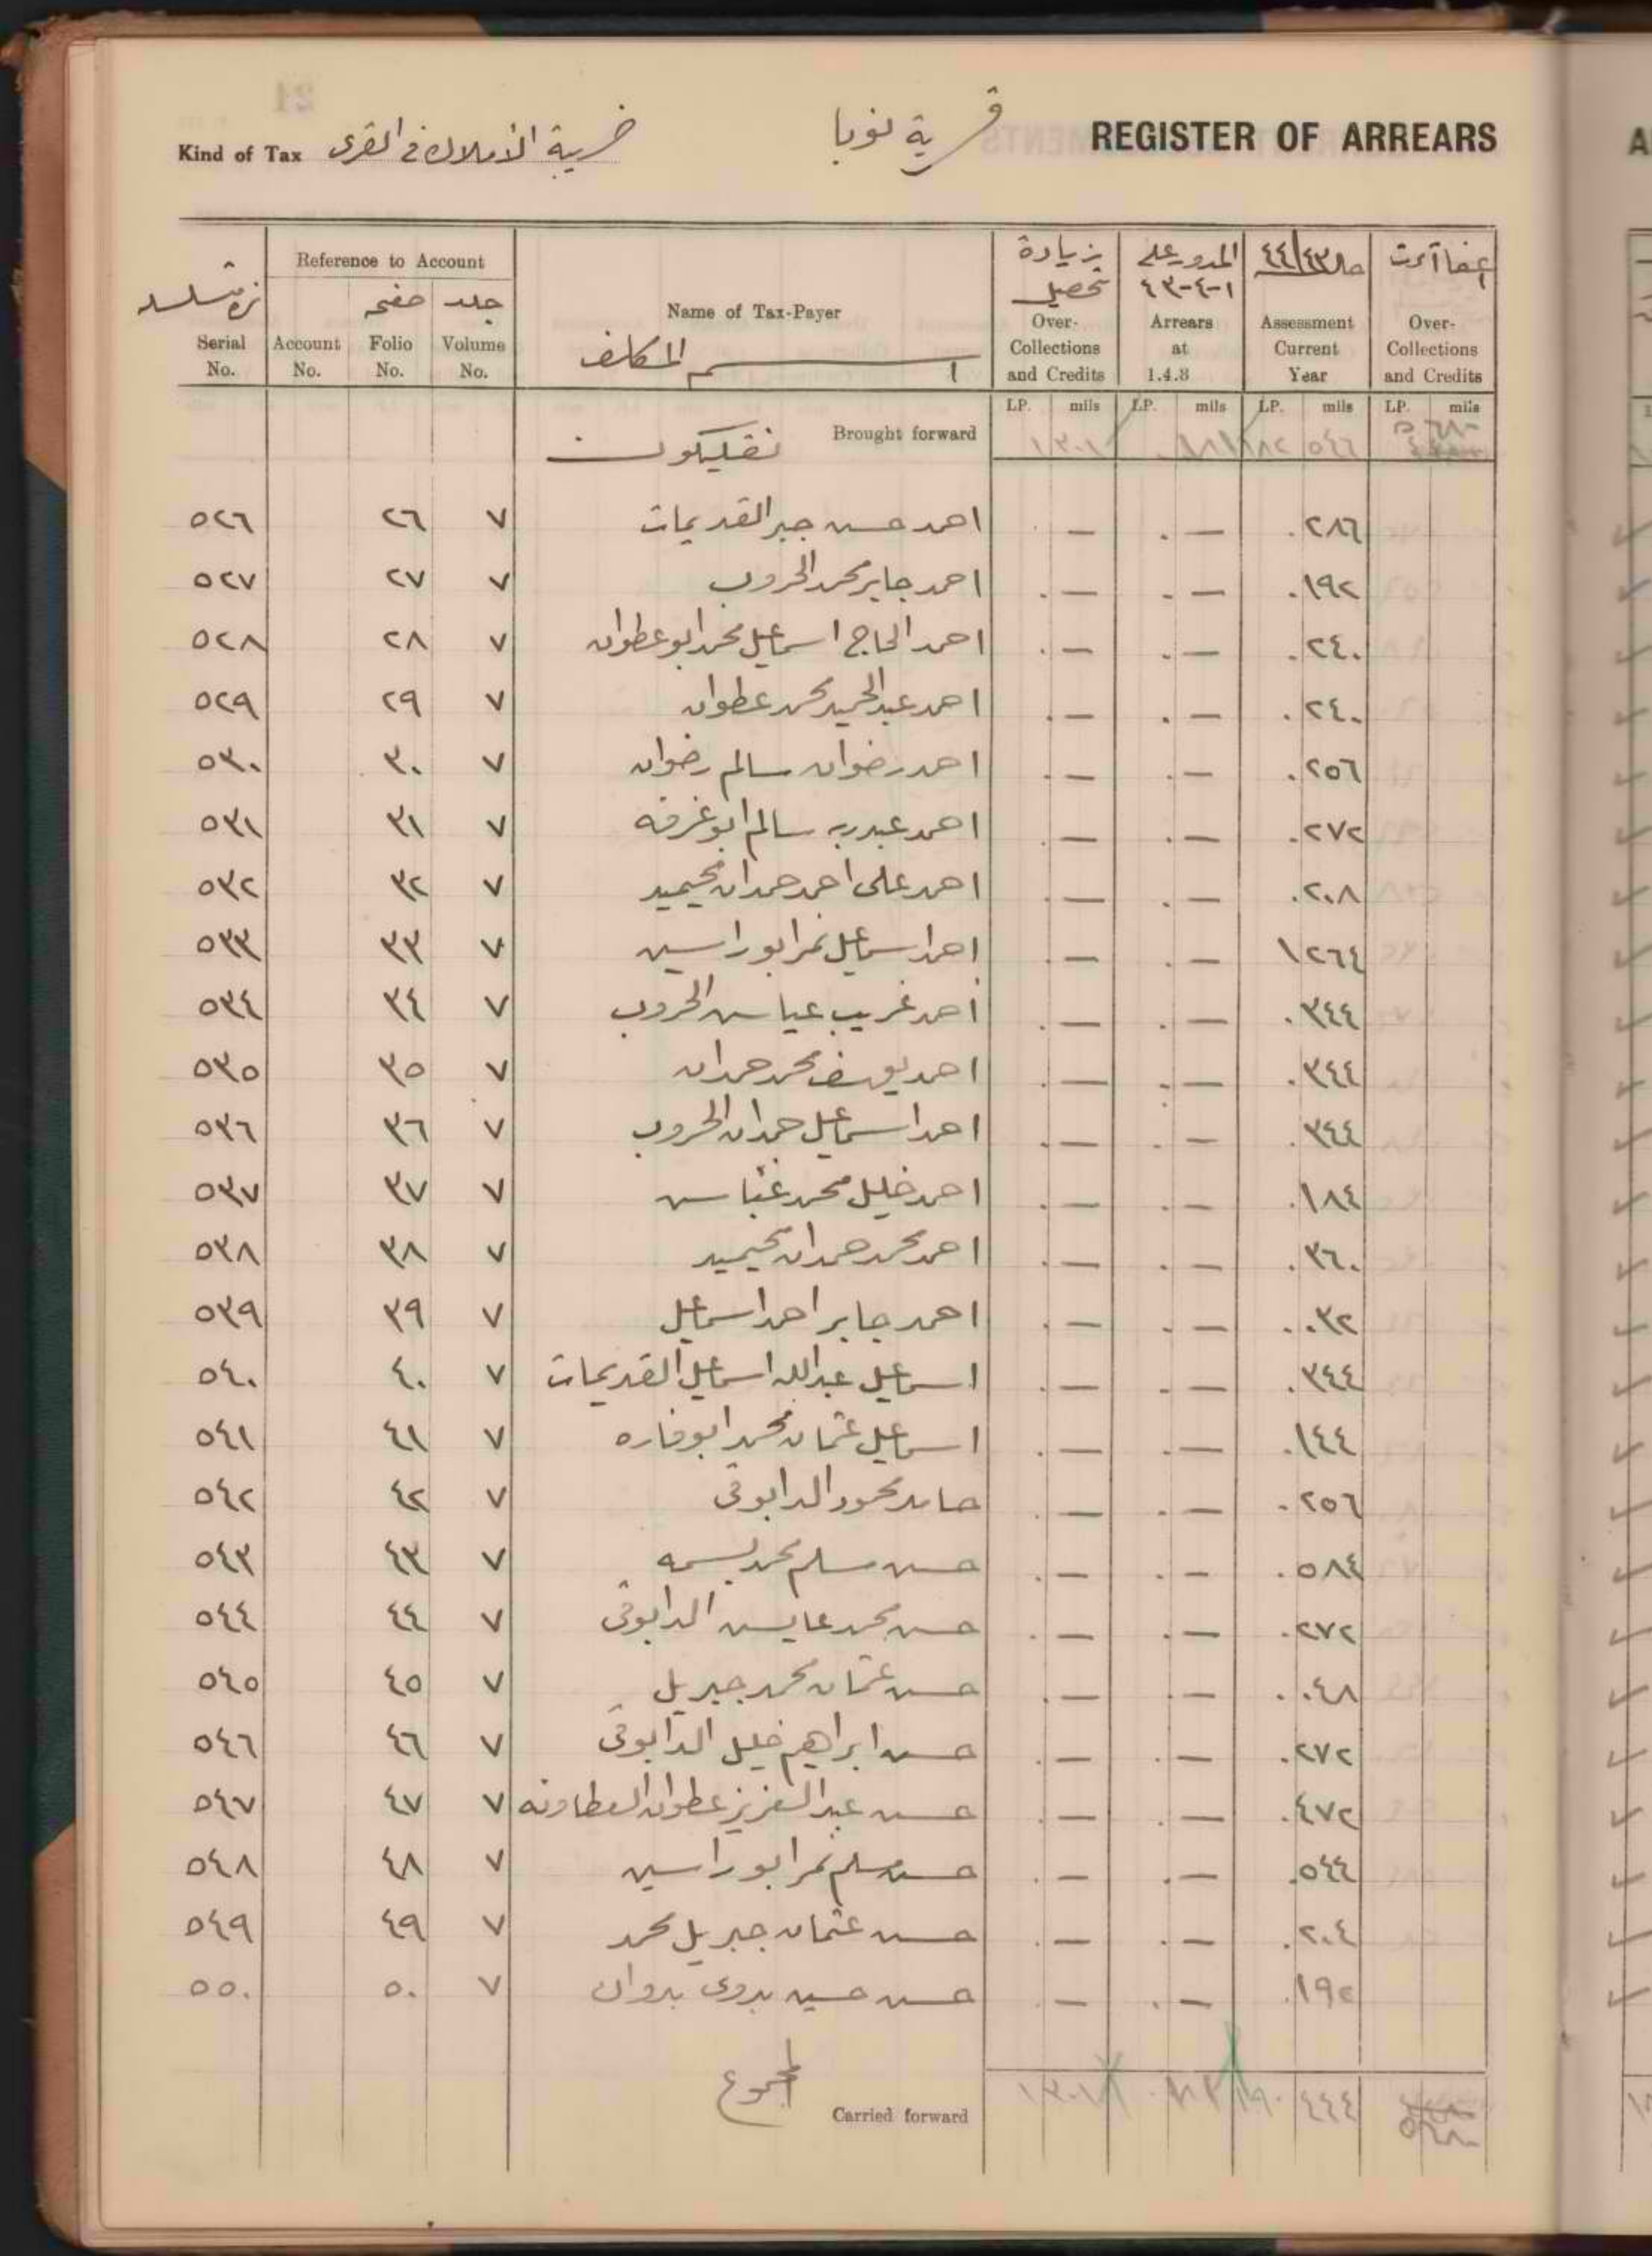 REGISTER OF ARREARS
قرية نوبا
Kind of Tax ضريبة الأملاك في القرى
Serial No. | Reference to Account | Name of Tax-Payer | زيادة تحصيل | المدور على ١-٤-٤٣ | ٤٤/٤٣
Account No. | صفحه Folio No. | جلد Volume No. | اسم المكلف | Over-Collections and Credits | Arrears at 1.4.8 | Assessment Current Year | Over-Collections and Credits
LP. mils | LP. mils | LP. mils | LP. mils
Brought forward ١٣٠١ ٨٢ ٥٤٦
٥٢٦ ٢٦ ٧ احمد حسن جبر القديمات — . — . ٢٨٦
٥٢٧ ٢٧ ٧ احمد جابر محمد الخروب — . — . ١٩٢
٥٢٨ ٢٨ ٧ احمد الحاج اسماعيل محمد ابو عطوان — . — . ٢٤٠
٥٢٩ ٢٩ ٧ احمد عبد الحميد محمد عطوان — . — . ٢٤٠
٥٣٠ ٣٠ ٧ احمد رضوان سالم رضوان — . — . ٢٥٦
٥٣١ ٣١ ٧ احمد عبدربه سالم ابو غرفه — . — . ٢٧٢
٥٣٢ ٣٢ ٧ احمد على احمد حمدان محيميد — . — . ٢٠٨
٥٣٣ ٣٣ ٧ احمد اسماعيل نمر ابو راسين — . — ١ ٢٦٤
٥٣٤ ٣٤ ٧ احمد غريب عباس الخروب — . — . ٣٤٤
٥٣٥ ٣٥ ٧ احمد يوسف محمد حمدان — . — . ٣٤٤
٥٣٦ ٣٦ ٧ احمد اسماعيل حمدان الخروب — . — . ٣٤٤
٥٣٧ ٣٧ ٧ احمد خليل محمد — . — . ١٨٤
٥٣٨ ٣٨ ٧ احمد محمد حمدان محيميد — . — . ٣٦٠
٥٣٩ ٣٩ ٧ احمد جابر احمد اسماعيل — . — . ٠٣٢
٥٤٠ ٤٠ ٧ اسماعيل عبدالله اسماعيل القديمات — . — . ٣٤٤
٥٤١ ٤١ ٧ اسماعيل عثمان محمد ابو فاره — . — . ١٤٤
٥٤٢ ٤٢ ٧ حامد محمود الدابوقى — . — . ٢٥٦
٥٤٣ ٤٣ ٧ حسن مسلم محمد بسمه — . — . ٥٨٤
٥٤٤ ٤٤ ٧ حسن محمد عايس الدابوقى — . — . ٢٧٢
٥٤٥ ٤٥ ٧ حسن عثمان محمد جبريل — . — . ٠٤٨
٥٤٦ ٤٦ ٧ حسن ابراهيم خليل الدابوقى — . — . ٢٧٢
٥٤٧ ٤٧ ٧ حسن عبد العزيز عطوان العطاونه — . — . ٤٧٢
٥٤٨ ٤٨ ٧ حسن مسلم نمر ابو راسين — . — . ٥٤٤
٥٤٩ ٤٩ ٧ حسن عثمان جبريل محمد — . — . ٢٠٤
٥٥٠ ٥٠ ٧ حسن حسين بدوى بدوان — . — . ١٩٢
المجموع Carried forward ١٣٠١ ٩٠ ٤٤٤